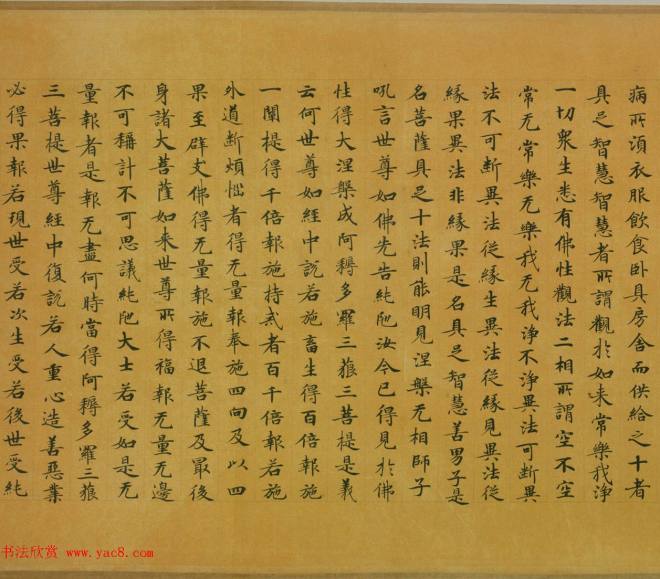 病所湏衣服飲食卧具房舍而供給之十者
具足智慧智慧者所謂觀於如来常樂我浄
一切衆生悉有佛性觀法二相所謂空不空
常无常樂无樂我无我浄不浄異法可断異
法不可断異法從緣生異法從緣見異法從
緣果異法非緣果是名具足智慧善男子是
名菩薩具足十法則能明見涅槃无相師子
吼言世尊如佛先告純陁汝今已得見於佛
性得大涅槃成阿耨多羅三藐三菩提是義
云何世尊如經中說若施畜生得百倍報施
一闡提得千倍報施持戒者百千倍報若施
外道断煩惱者得无量報奉施四向及以四
果至辟支佛得无量報施不退菩薩及最後
身諸大菩薩如来世尊所得福報无量无邊
不可稱計不可思議純陁大士若受如是无
量報者是報无盡何時當得阿耨多羅三藐
三菩提世尊經中復說若人重心造善惡業
必得果報若現世受若次生受若後世受純
书法欣赏 www.yac8.com